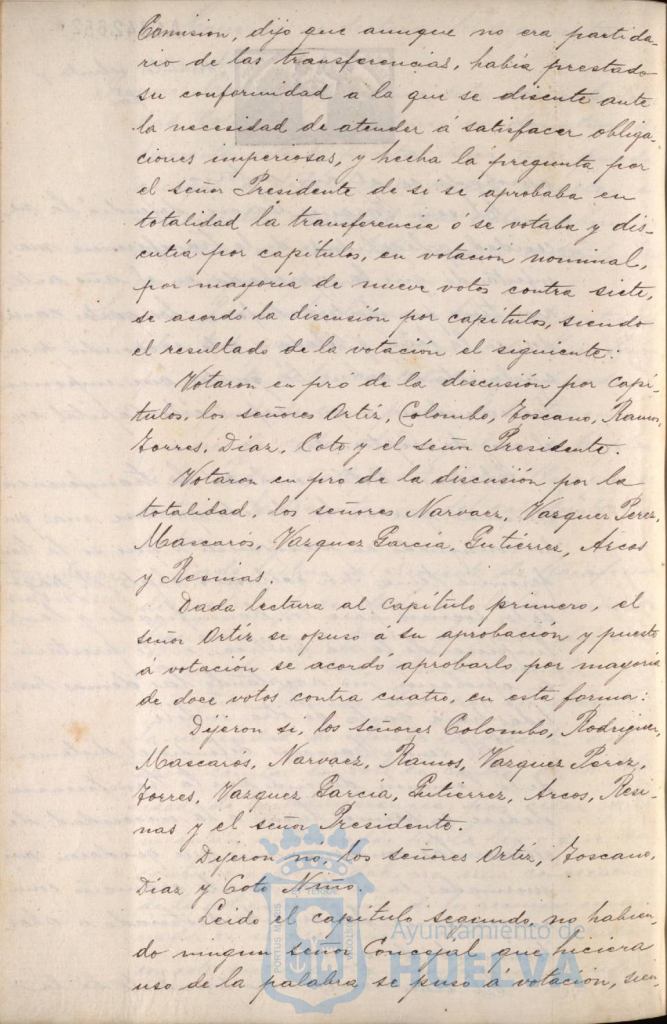 Comision, dijo que aunque no era partida-
rio de las transferencias, había prestado
su conformidad a la que se discute ante
la necesidad de atender á satisfacer obliga-
ciones imperiosas, y hecha la pregunta por
el señor Presidente de si se aprobaba en
totalidad la transferencia ó se votaba y dis-
cutía por capítulos, en votación nominal,
por mayoría de nueve votos contra siete,
se acordó la discusión por capítulos, siendo
el resultado de la votación el siguiente:
Votaron en pró de la discusión por capí-
tulos, los señores Ortíz, Colombo, Toscano, Ramos,
Torres, Díaz, Coto y el señor Presidente.
Votaron en pró de la discusión por la
totalidad, los señores Narvaez, Vazquez Perez,
Mascarós, Vazquez García, Gutiérrez, Arcos
y Resinas.
Dada lectura al capítulo primero, el
señor Ortíz se opuso á su aprobación y puesto
á votación se acordó aprobarlo por mayoría
de doce votos contra cuatro, en esta forma:
Dijeron si, los señores Colombo, Rodriguez,
Mascarós, Narvaez, Ramos, Vazquez Perez,
Torres, Vazquez García, Gutierrez, Arcos, Resi-
nas y el señor Presidente.
Dijeron nó, los señores Ortíz, Toscano,
Díaz y Coto Nino.
Leido el capítulo segundo, no habien-
do ningun señor Concejal que hiciera
uso de la palabra se puso á votación, sien-
Ayuntamiento de
HUELVA